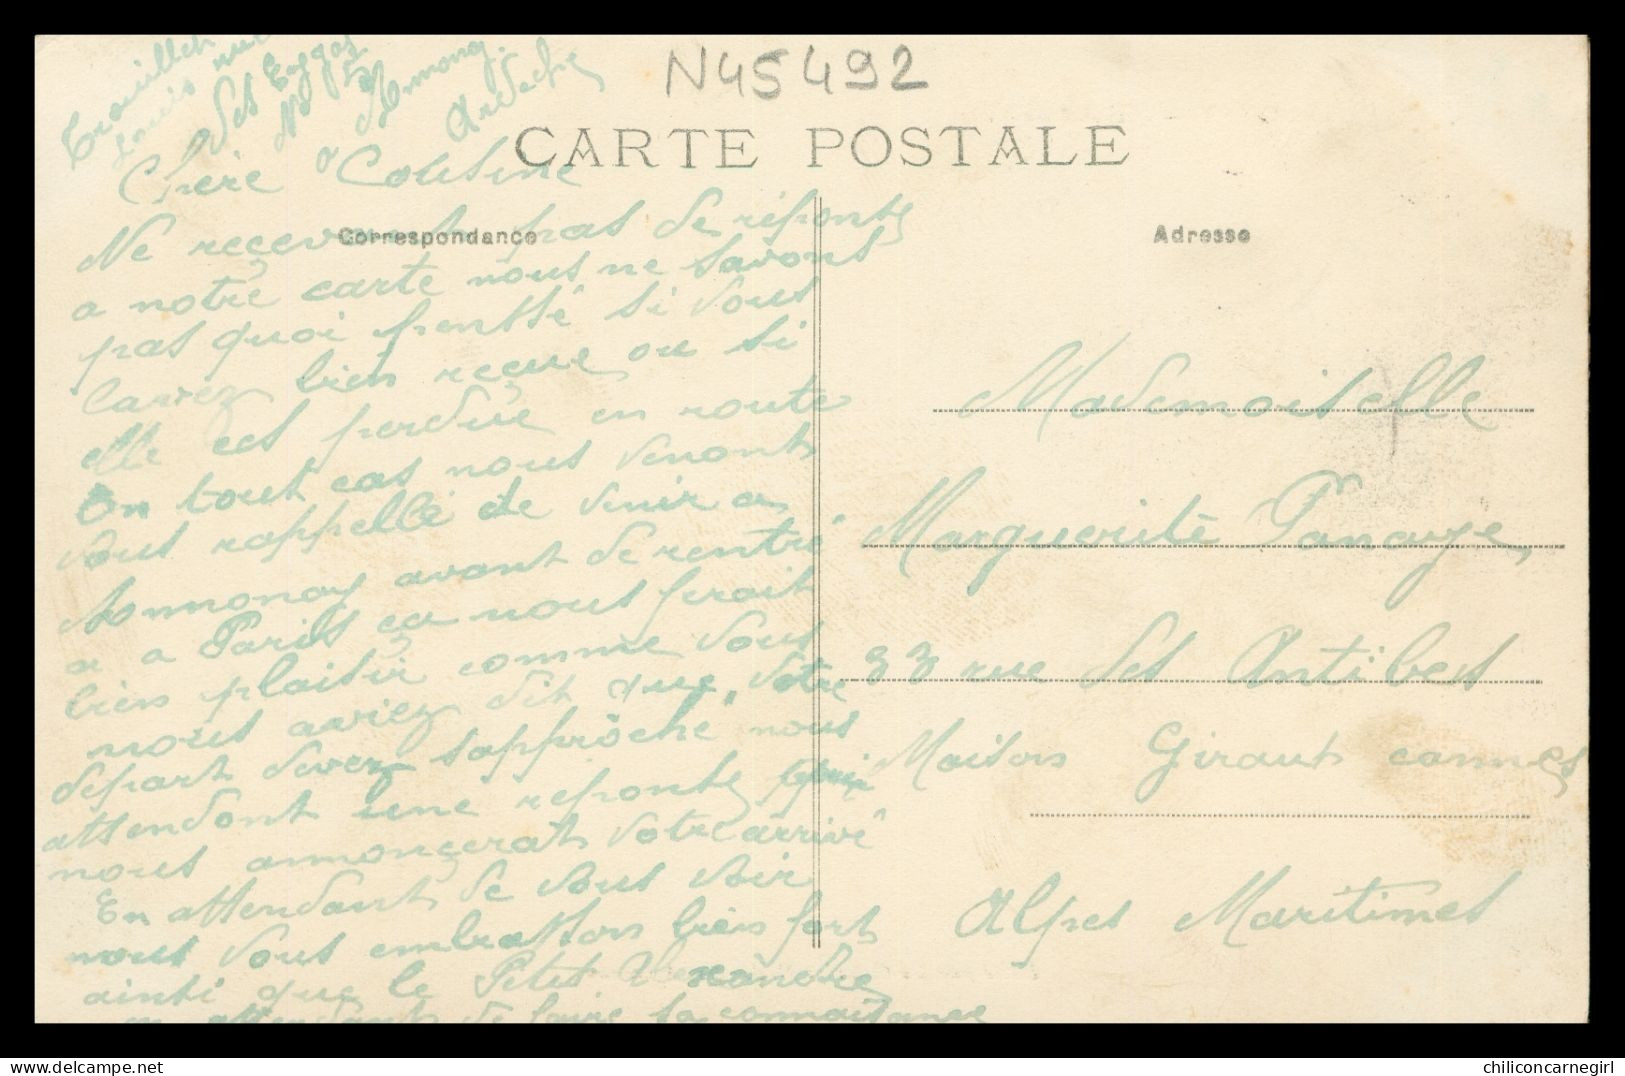 N45492
Trouillet
Louis rue
des
No
Annonay
Ardèche
CARTE POSTALE
Chère Cousine
Correspondance
Adresse
Ne recevant pas de réponse
a notre carte nous ne savons
pas quoi penssé si vous
lavez bien recue ou si
elle est perdue en route
En tout cas nous venons
vous rappellé de venir a
Annonay avant de rentré
a Paris ca nous ferait
bien plaisir comme vous
nous aviez dit que votre
depart devez sapproché nous
attendons une reponse qui
nous annoncerat votre arrivé
En attendant de vous voir
nous vous embrassons bien fort
ainsi que le Petit Alexandre
en attendant de faire sa connaissance
Mademoiselle
Marguerite Panaye
33 rue des Antibes
Maison Giraut cannes
Alpes Maritimes
chiliconcarnegirl